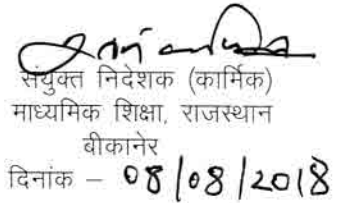 संयुक्त निदेशक (कार्मिक)
माध्यमिक शिक्षा, राजस्थान
बीकानेर
दिनांक – 08/08/2018